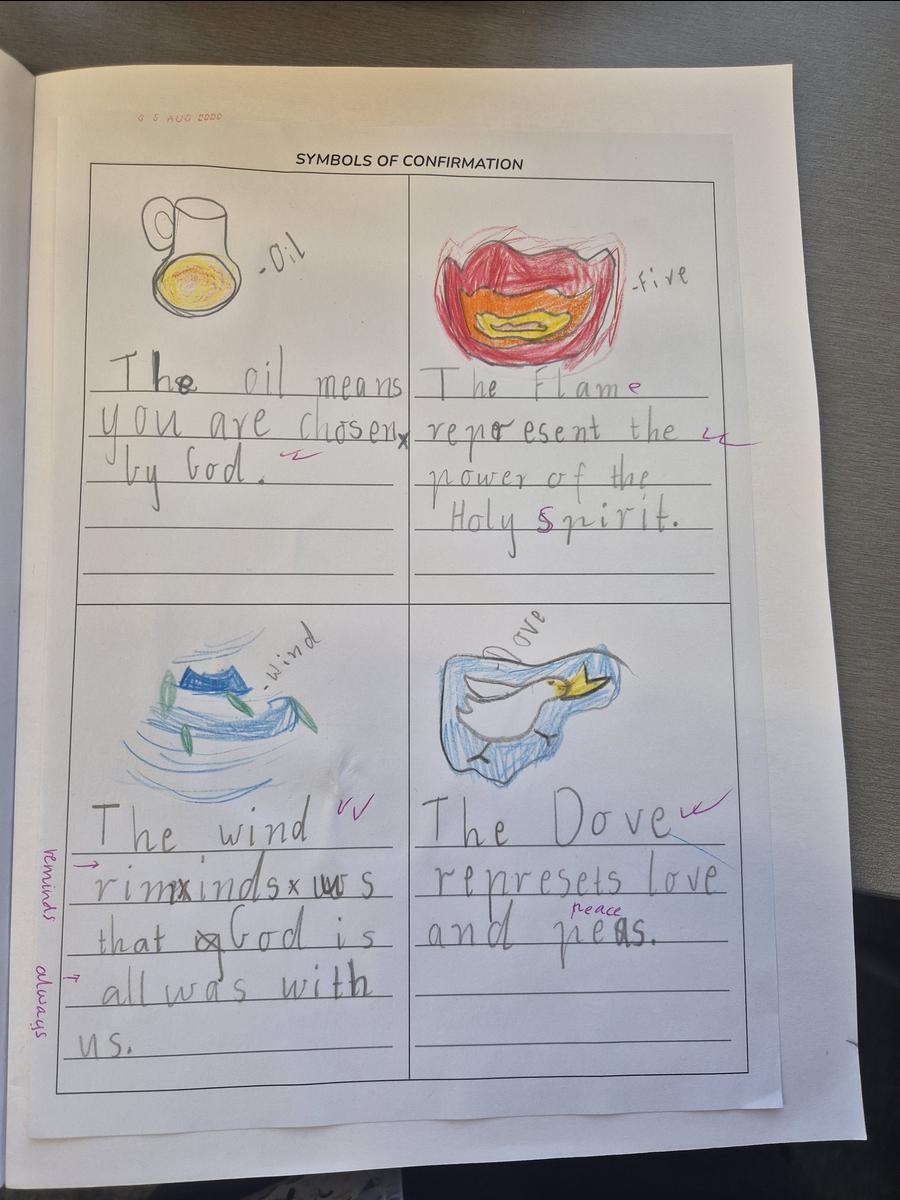 SYMBOLS OF CONFIRMATION
-Oil
The oil means
you are chosen
by God.
-Fire
The Flame
represent the
power of the
Holy Spirit.
-wind
The wind
reminds
riminds us
that God is
always
all was with
us.
-Dove
The Dove
represets love
peace
and peas.